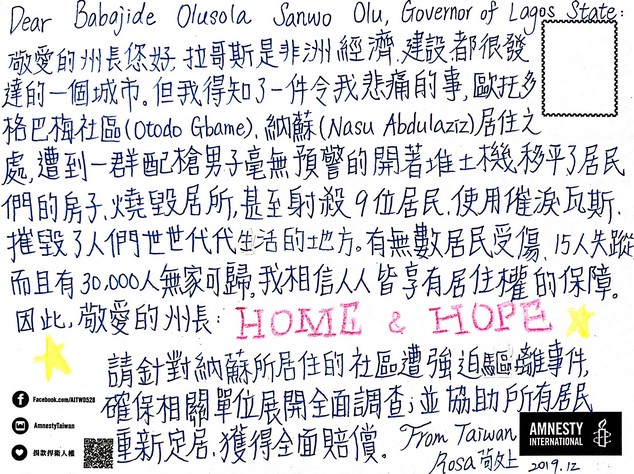 Dear Babajide Olusola Sanwo Olu, Governor of Lagos State:
敬愛的州長您好,拉哥斯是非洲經濟、建設都很發
達的一個城市。但我得知了一件令我悲痛的事,歐托多
格巴梅社區(Otodo Gbame),納蘇(Nasu Abdulaziz)居住之
處,遭到一群配槍男子毫無預警的開著堆土機,移平了居民
們的房子、燒毀居所,甚至射殺9位居民、使用催淚瓦斯,
摧毀了人們世世代代生活的地方。有無數居民受傷、15人失蹤
而且有30,000人無家可歸。我相信人人皆享有居住權的保障。
因此,敬愛的州長: HOME & HOPE
請針對納蘇所居住的社區遭強迫驅離事件,
確保相關單位展開全面調查;並協助所有居民
重新定居、獲得全面賠償。 From Taiwan
Rosa 敬上 2019.12
Facebook.com/AITW0528
AmnestyTaiwan
捐款捍衛人權
AMNESTY
INTERNATIONAL